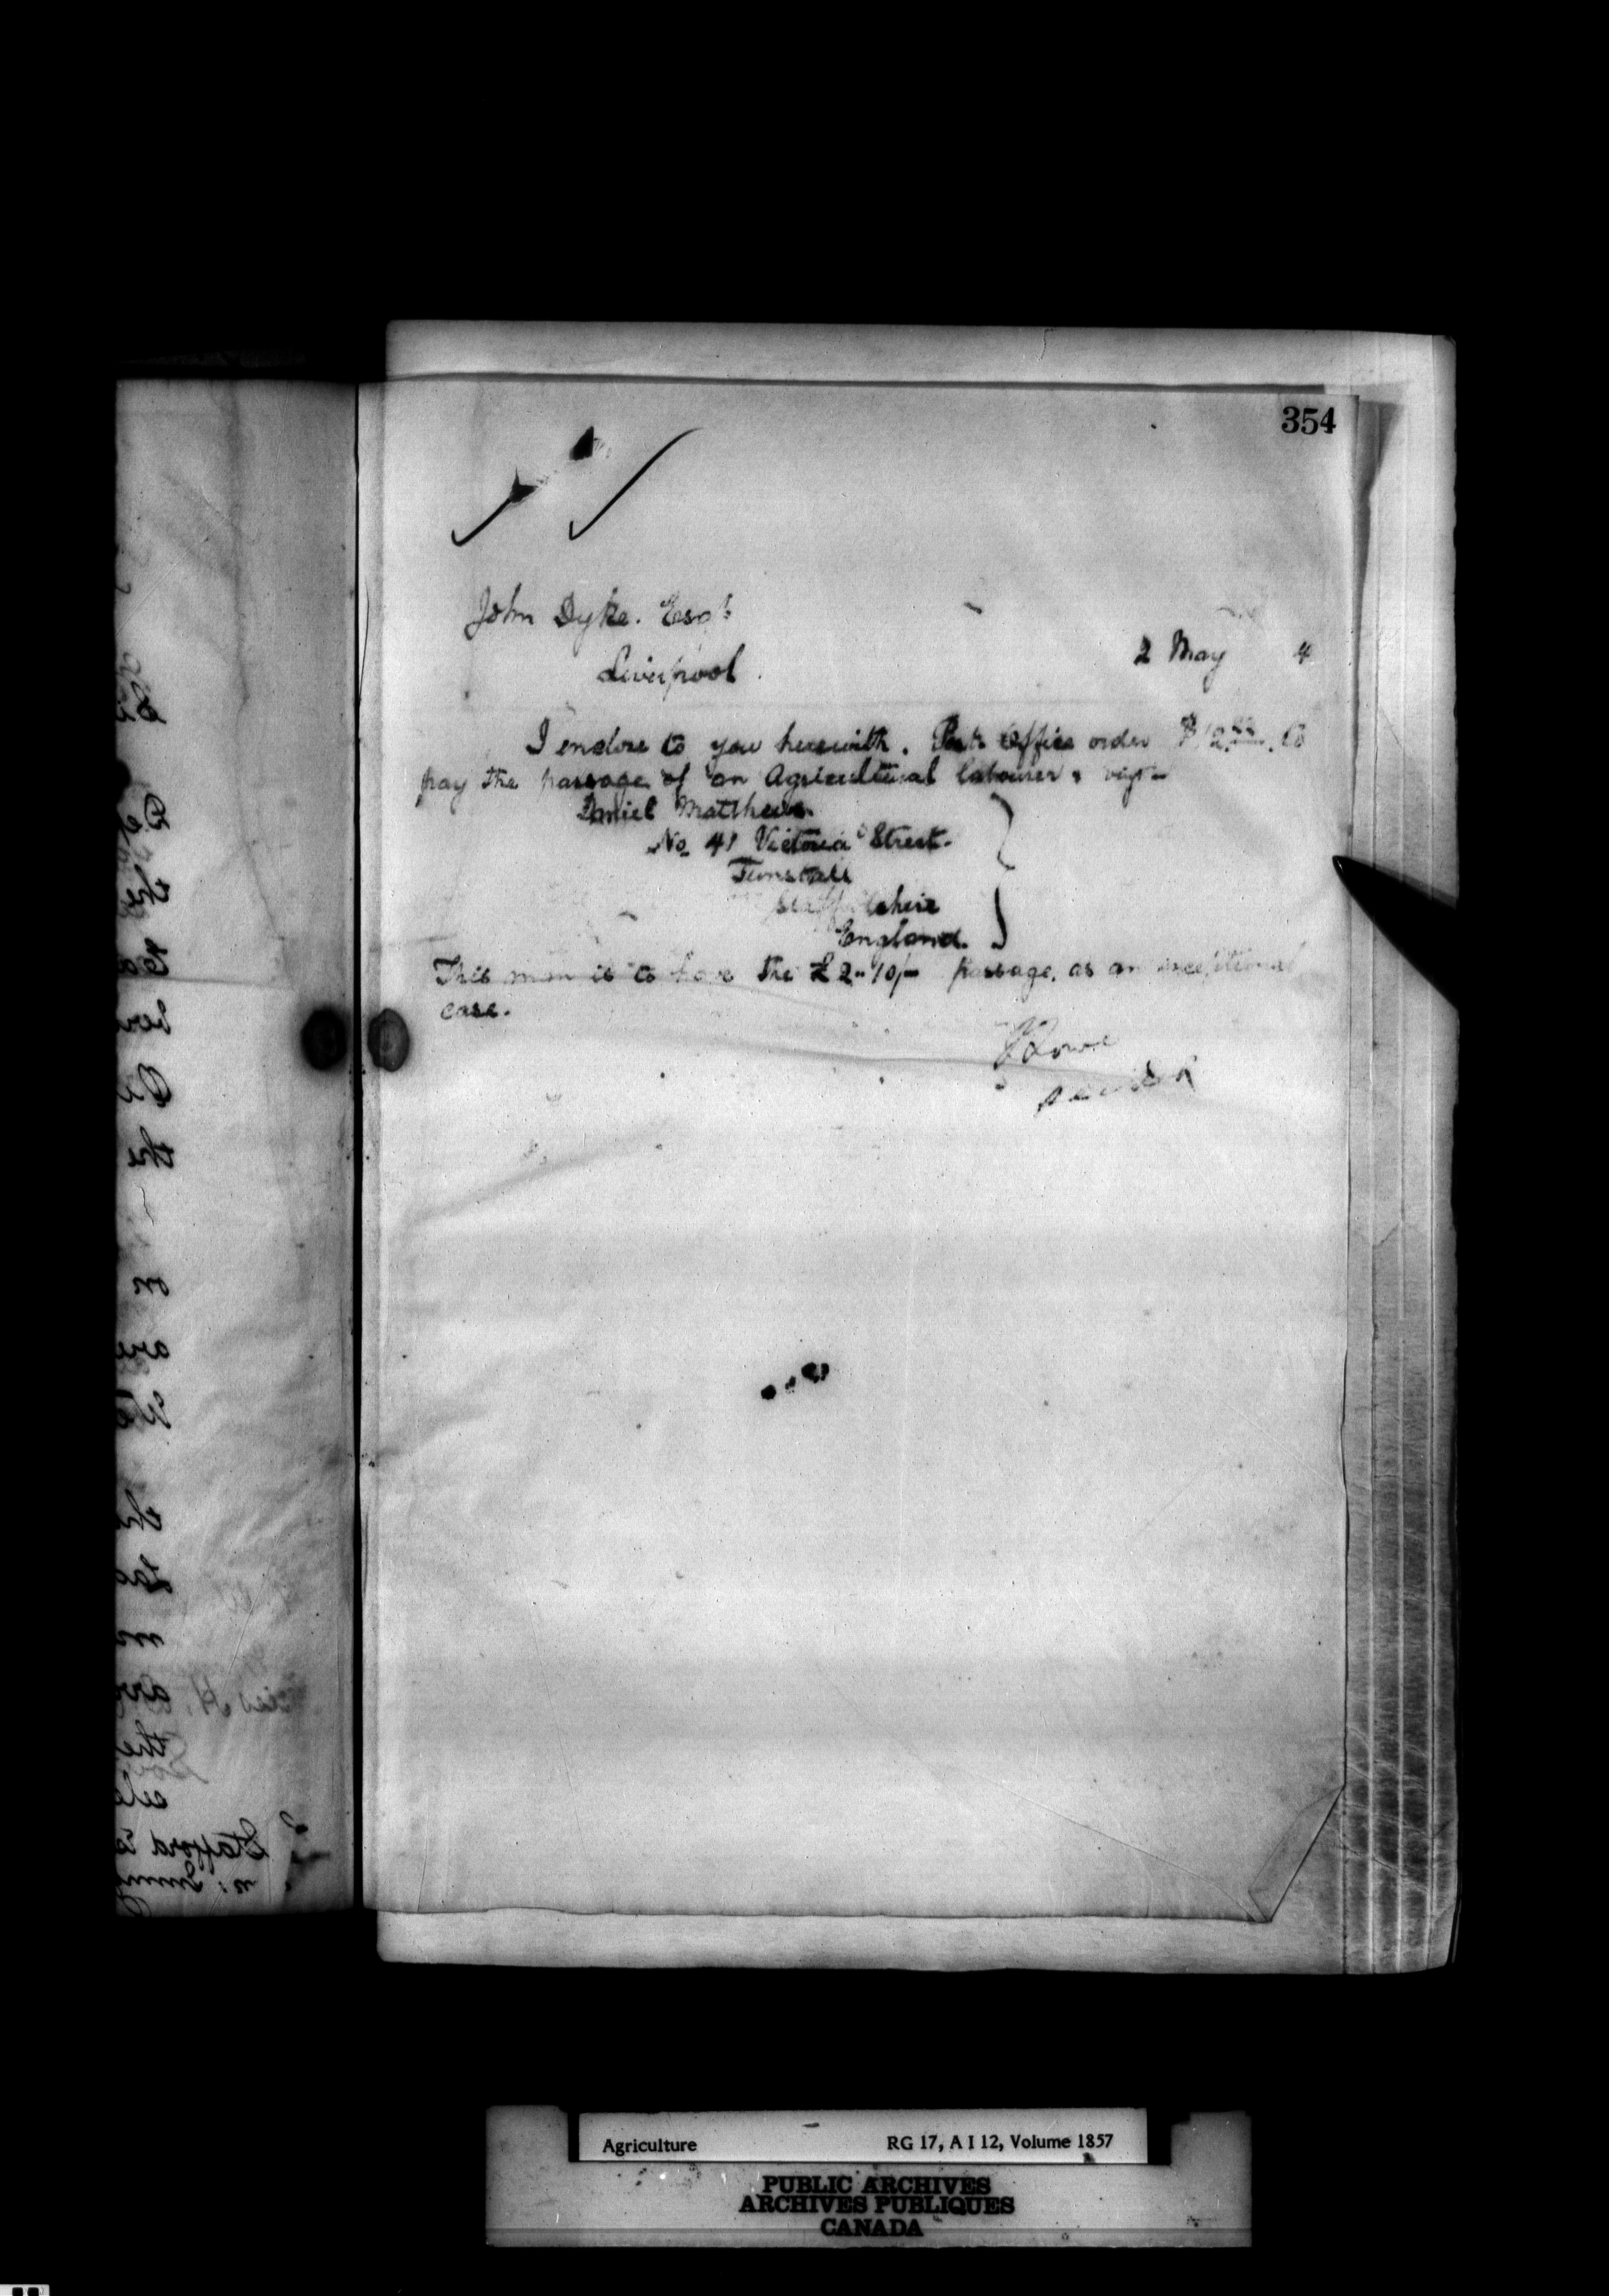 354
John Dyke. Esqr
Liverpool.
2 May 4
I enclose to you herewith. Post Office order $12.00. to
pay the passage of an Agricultural labourer, vizt
Daniel Matthews.
No 41 Victoria Street.
Tunstall
Staffordshire
England.
This man is to have the £2-10/- passage, as an exceptional
case.
J Lowe
Agriculture RG 17, A I 12, Volume 1857
PUBLIC ARCHIVES
ARCHIVES PUBLIQUES
CANADA